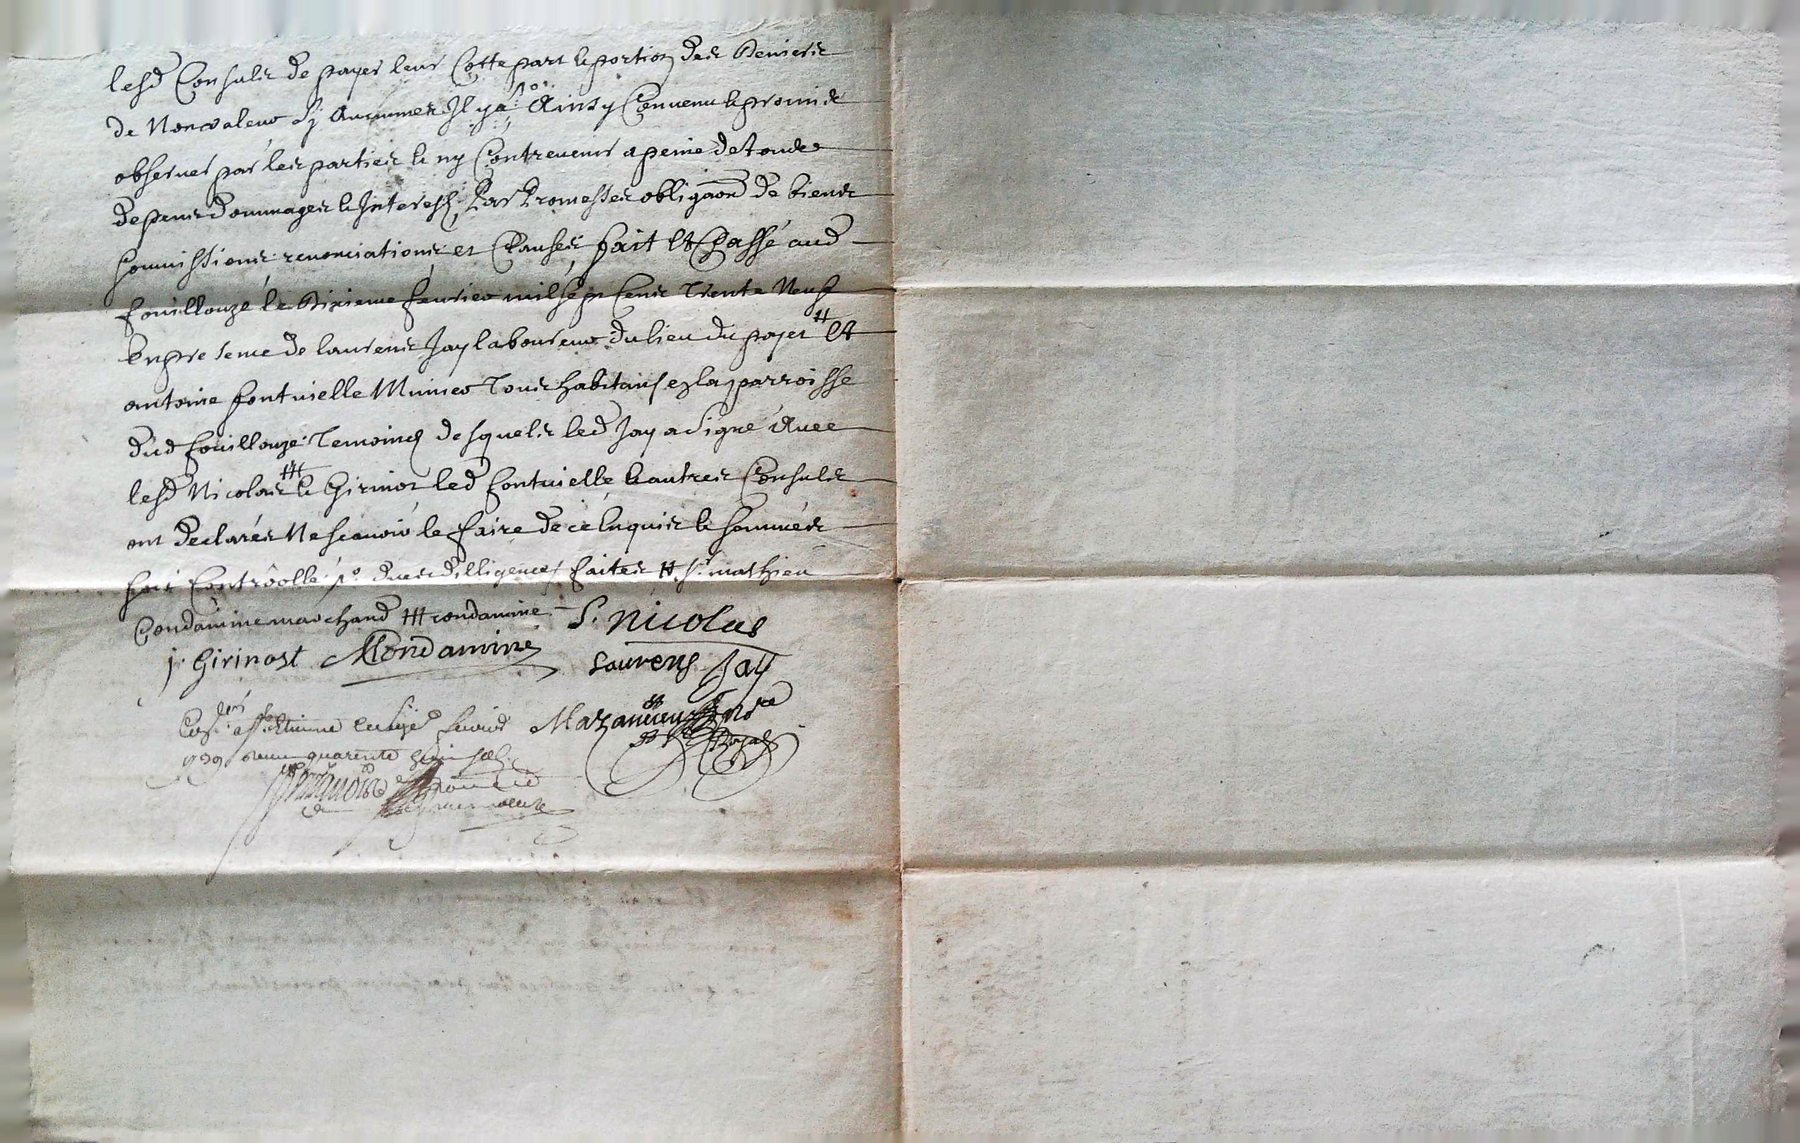 lesd Consuls de payer leur Cotte part & portion des Deniers
de Nonvaleur sy Aucunnes Il y a, Ainsy Convenu & promis
observer par les parties & ny Contrevenir a peine de toudes
depens dommages & Interest, Par Promesses obligaon de biens
soumissions renonciations et Clauses, fait Et Passé aud
fouillouze le Dixieme fevrier mil sept Cens Trente Neuf
En presence de laurens Jay laboureur du lieu du poyet # Et
antoine fontvielle Munier Tous habitans en la parroisse
dud fouillouze Temoins desquels led Jay a Signé Avec
lesd Nicolas # & Girinot led fontvielle & autres Consuls
ont declarés Ne scavoir le faire de ce Enquis & sommés
soit Controollé, diligences faites # sr mathieu
Condamine marchand # condamine
S. Nicolas
j. Girinost MCondamine
Laurens Jay
Mazancieux Nore
Royal
Etienne fevrier
1739 quarente